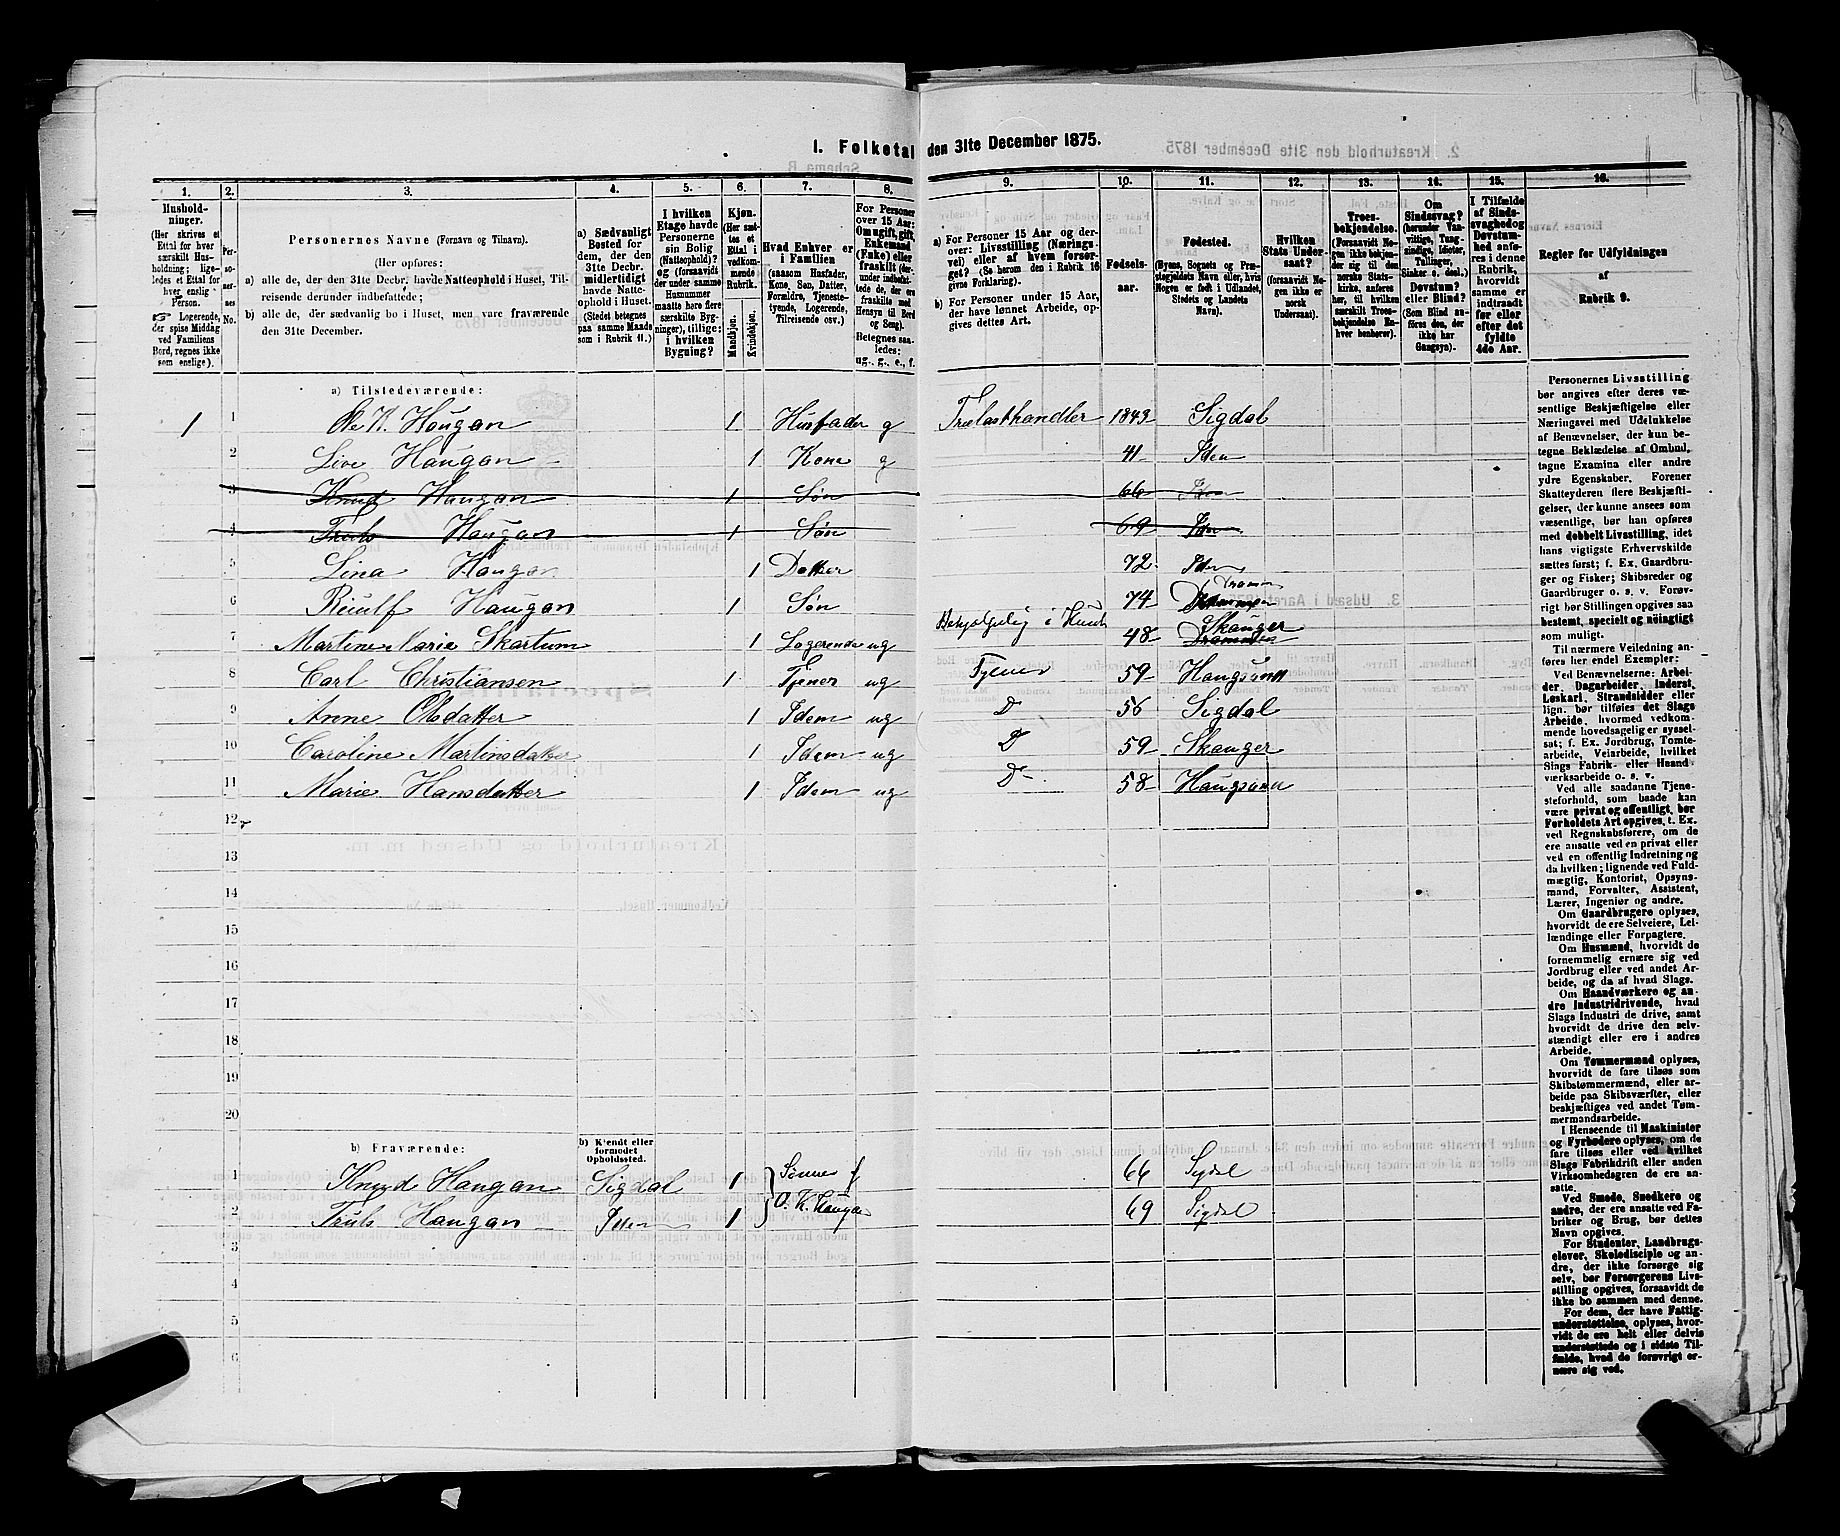 1. Folketal den 31te December 1875.
1. 2. 3. 4. 5. 6. 7. 8. 9. 10. 11. 12. 13. 14. 15. 16.
Hushold-
ninger.
(Her skrives et
Ettal for hver
særskilt Hus-
holdning; lige-
ledes et Ettal for
hver enslig
Person.
Logerende,
der spise Middag
ved Familiens
Bord, regnes ikke
som enslige).
Per-
so-
ner-
nes
No.
Personernes Navne (Fornavn og Tilnavn).
(Her opføres:
a) alle de, der den 31te Decbr. havde Natteophold i Huset, Til-
reisende derunder indbefattede;
b) alle de, der sædvanlig bo i Huset, men vare fraværende
den 31te December.
a) Sædvanligt
Bosted for
dem, der den
31te Decbr.
midlertidigt
havde Natte-
ophold i Huset.
(Stedet betegnes
paa samme Maade
som i Rubrik 11.)
I hvilken
Etage havde
Personerne
sin Bolig
(Natteophold)?
og (forsaavidt
der under samme
Husnummer
maatte høre flere
særskilte Byg-
ninger), tillige:
i hvilken
Bygning?
Kjøn.
(Her sæt-
tes et
Ettal i
vedkom-
mende
Rubrik.
Mandkjøn.
Kvindekjøn.
Hvad Enhver er
i Familien
(saasom Husfader,
Kone, Søn, Datter,
Forældre, Tjeneste-
tyende, Logerende,
Tilreisende osv.)
For Personer
over 15 Aar:
Om ugift, gift,
Enkemand
(Enke) eller
fraskilt
Betegnes saa-
ledes:
ug., g., e., f.
a) For Personer 15 Aar og der-
over: Livsstilling (Nærings-
vei) eller af hvem forsør-
get? (Se herom den i Rubrik 16
givne Forklaring).
b) For Personer under 15 Aar,
der have lønnet Arbeide, op-
gives dettes Art.
Fødsels-
aar.
Fødested.
(Byens, Sognets og Præ-
stegjeldets Navn eller, hvis
Nogen er født i Udlandet,
Stedets og Landets
Navn).
Hvilken
Stats Under-
saat?
(forsaavidt No-
gen ikke er
norsk
Undersaat).
Troes-
bekjendelse.
(Forsaavidt No-
gen ikke bekjen-
der sig til den
norske Stats-
kirke, anføres
her, til hvilken
særskilt Troes-
bekjendelse En-
hver henhører).
Om
Sindssvag?
(herunder Van-
vittige, Tung-
sindige, Idioter,
Tullinger,
Sinker o. desl.)
Døvstum?
eller Blind?
(Som Blind an-
føres den, der
ikke har
Gangsyn).
I Tilfælde
af Sinds-
svaghed og
Døvstum-
hed anfø-
res i denne
Rubrik,
hvorvidt
samme er
indtraadt
før eller
efter det
fyldte
4de Aar.
Regler for Udfyldningen
af
Rubrik 9.
a) Tilstedeværende:
1 1 Ole K. Haugan 1 Husfader g Trælasthandler 1843 Sigdal
2 Live Haugan 1 Kone g 41 Iden
3 Knud Haugan 1 Søn 66 Iden
4 Truls Haugan 1 Søn 69 Iden
5 Lina Haugan 1 Datter 72 Iden
6 Haugan 1 Søn 74 Dramm
7 Martine Marie Skartum 1 Logerende ug i 48 Skauger
8 Carl Christiansen 1 Tjener ug Tjener 59 Haugsunn
9 Anne Olsdatter 1 Idem ug D 56 Sigdal
10 Caroline Martinsdatter 1 Idem ug D 59 Skauger
11 Marie Hansdatter 1 Idem ug D 58 Haugsunn
12
13
14
15
16
17
18
19
20
b) Fraværende:
b) Kjendt eller
formodet
Opholdssted.
1 Knud Haugan Sigdal 1 Sønner f 66 Sigdal
2 Truls Haugan Iden 1 O. K. Haugan 69 Sigdal
3
4
5
6
Personernes Livsstilling
bør angives efter deres væ-
sentlige Beskjæftigelse eller
Næringsvei med Udelukkelse
af Benævnelser, der kun be-
tegne Beklædelse af Ombud,
tagne Examina eller andre
ydre Egenskaber. Forener
Skatteyderen flere Beskjæfti-
gelser, der kunne ansees som
væsentlige, bør han opføres
med dobbelt Livsstilling, idet
hans vigtigste Erhvervskilde
sættes først; f. Ex. Gaardbru-
ger og Fisker; Skibsreder og
Gaardbruger o. s. v. Forøv-
rigt bør Stillingen opgives saa
bestemt, specielt og nøiagtigt
som muligt.
Til nærmere Veiledning an-
føres her endel Exempler:
Ved Benævnelserne: Arbei-
der, Dagarbeider, Inderst,
Løskarl, Strandsidder eller
lign. bør tilføies det Slags
Arbeide, hvormed vedkom-
mende hovedsagelig er syssel-
sat; f. Ex. Jordbrug, Tomte-
arbeide, Veiarbeide, hvilket
Slags Fabrik- eller Haand-
værksarbeide o. s. v.
Ved alle saadanne Tjene-
steforhold, som baade kan
være privat og offentligt, bør
Forholdets Art opgives, t. Ex.
ved Regnskabsførere, om de
ere ansatte ved en privat eller
ved en offentlig Indretning og
da hvilken; lignende ved Fuld-
mægtig, Kontorist, Opsyns-
mand, Forvalter, Assistent,
Lærer, Ingeniør og andre.
Om Gaardbrugere oplyses,
hvorvidt de ere Selveiere, Lei-
lændinge eller Forpagtere.
Om Husmænd, hvorvidt de
fornemmelig ernære sig ved
Jordbrug eller ved andet Ar-
beide, og da af hvad Slags.
Om Haandværkere og an-
dre Industridrivende, hvad
Slags Industri de drive, samt
hvorvidt de drive den selv-
stændigt eller ere i andres
Arbeide.
Om Tømmermænd oplyses,
hvorvidt de fare tilsøs som
Skibstømmermænd, eller ar-
beide paa Skibsværfter, eller
beskjæftiges ved andet Tøm-
mermandsarbeide.
I Henseende til Maskinister
og Fyrbødere oplyses, om de
fare tilsøs eller ved hvilket
Slags Fabrikdrift eller anden
Virksomhedsgren de ere an-
satte.
Ved Smede, Snedkere og
andre, der ere ansatte ved Fa-
briker og Brug, bør dettes
Navn opgives.
For Studenter, Landbrugs-
elever, Skoledisciple og an-
dre, der ikke forsørge sig
selv, bør Forsørgerens Livs-
stilling opgives, forsaavidt de
ikke bo sammen med denne.
For dem, der have Fattig-
understøttelse, oplyses, hvor-
vidt de ere helt eller delvis
understøttede og i sidste Til-
fælde, hvad de forøvrigt er-
nære sig ved.